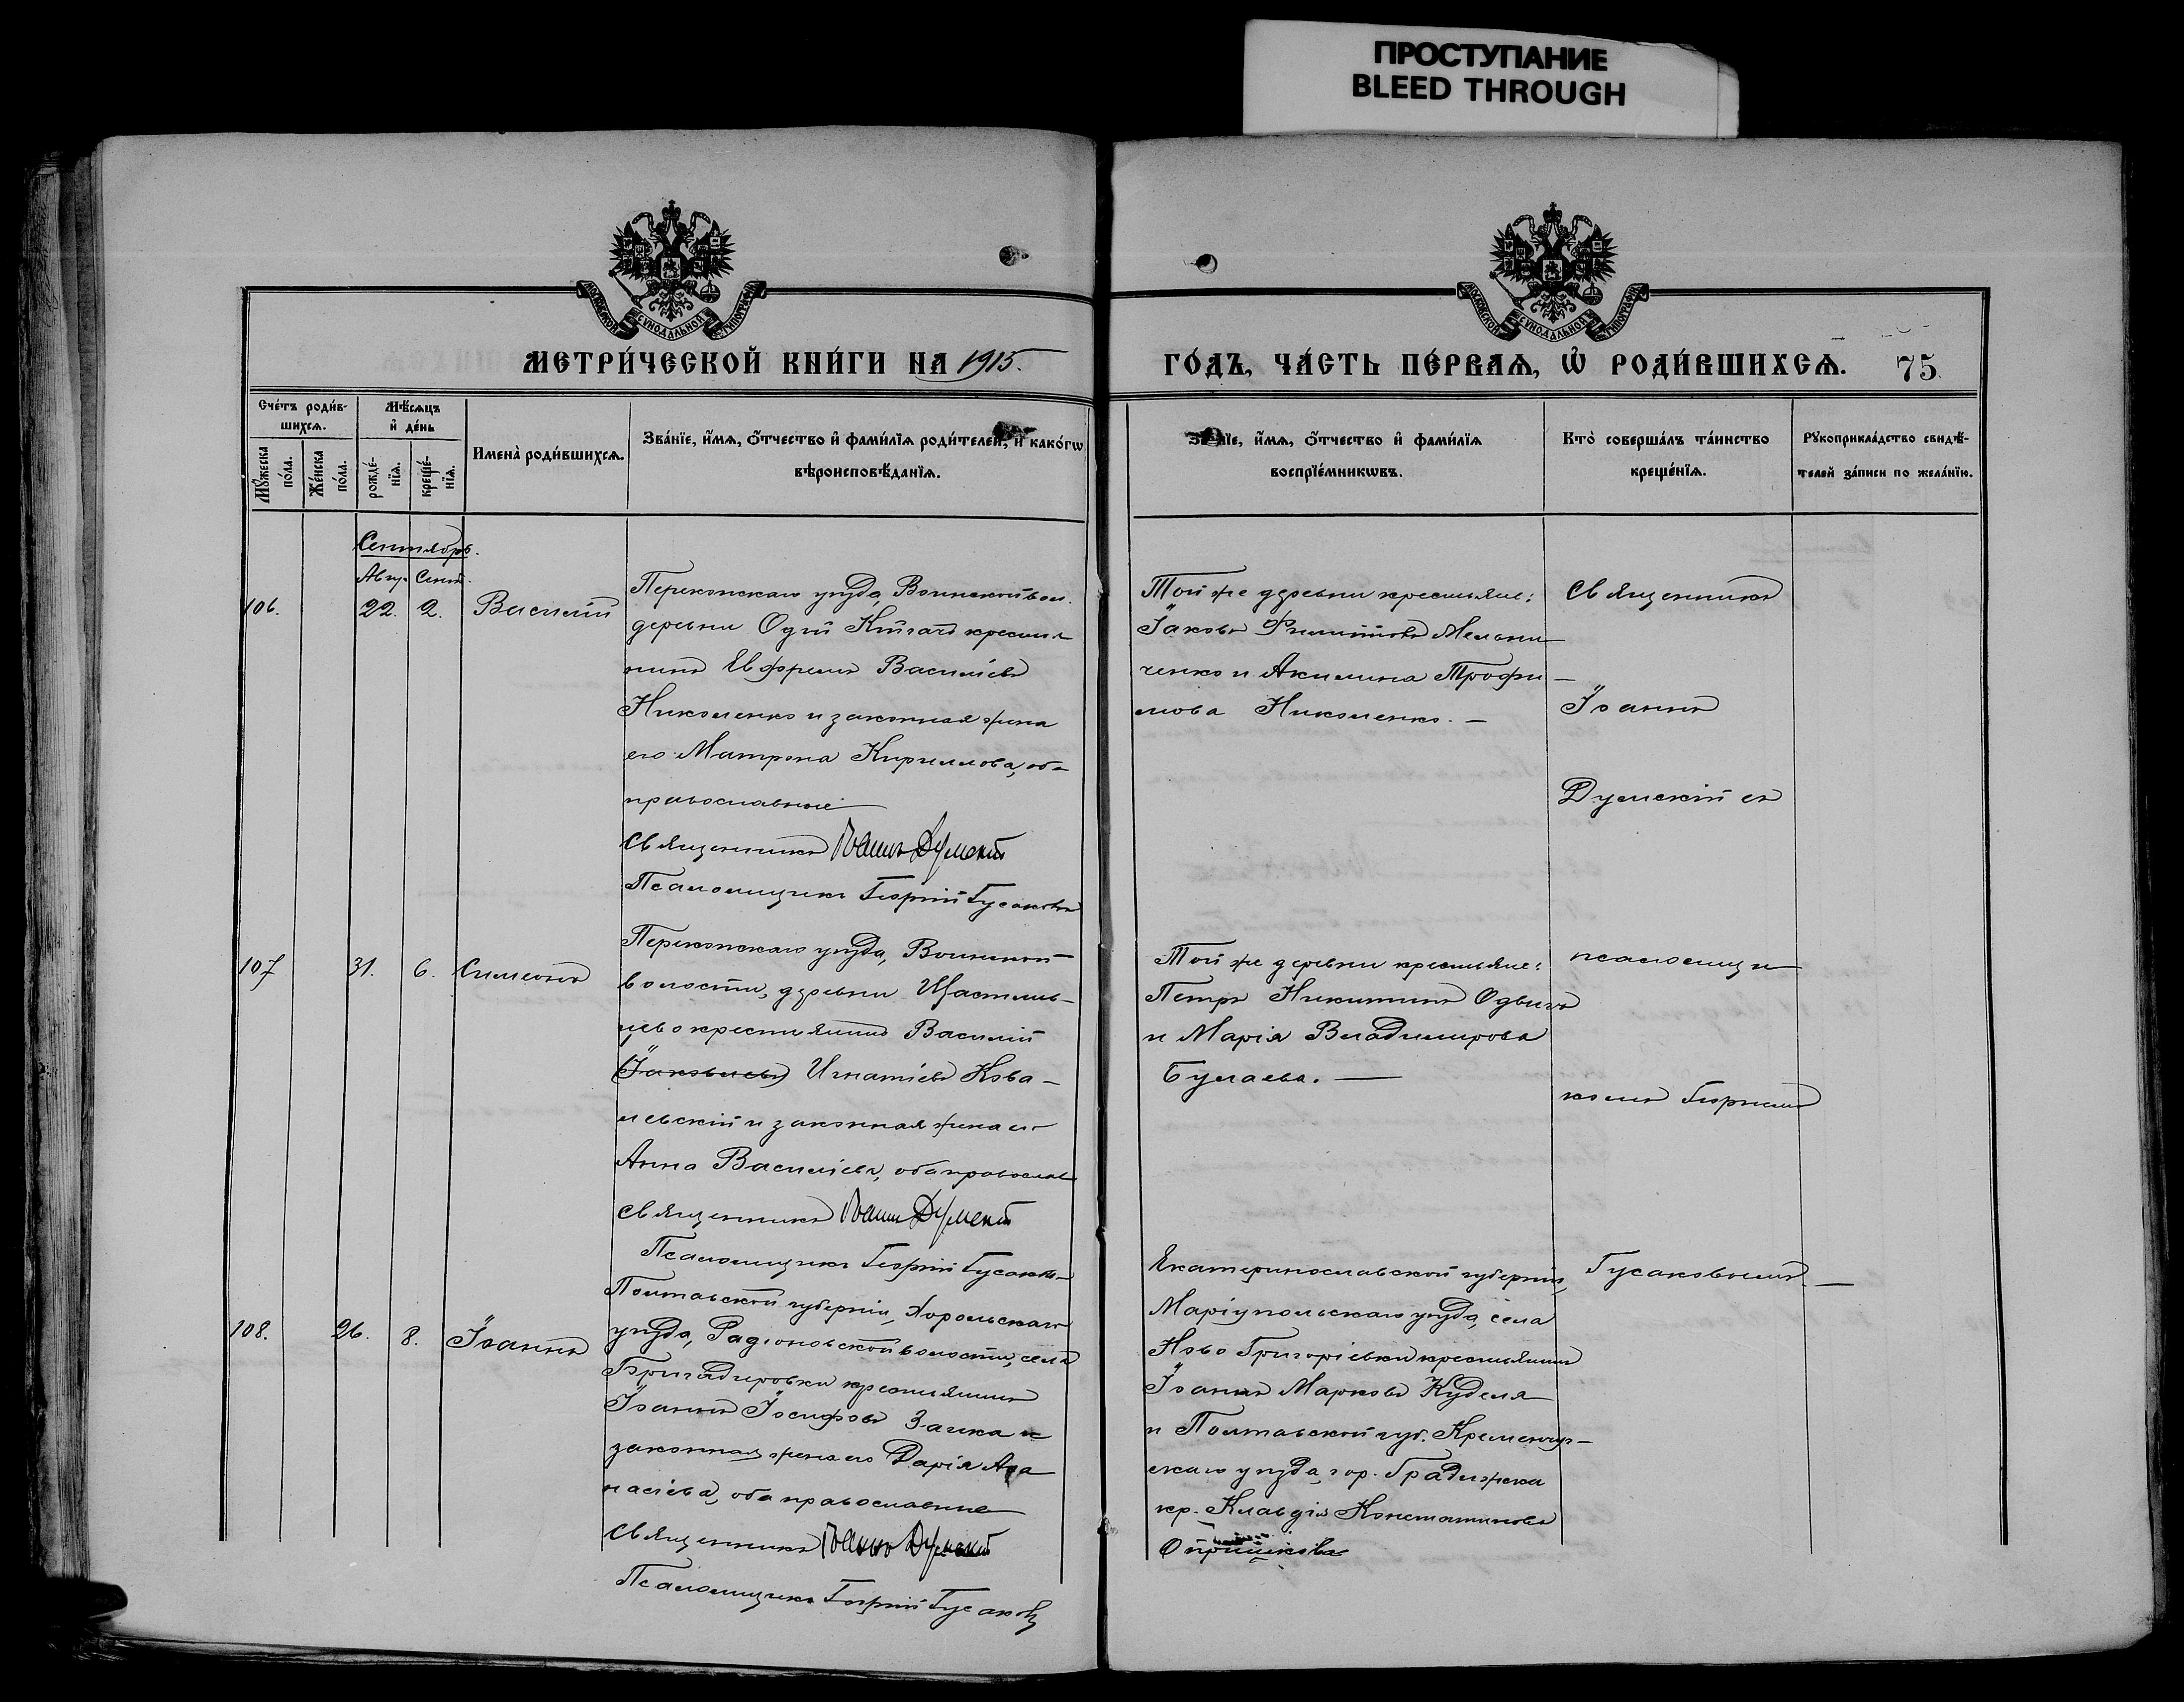 ПРОСТУПАНИЕ
BLEED THROUGH
МОСКОВСКОЙ СѴНОДАЛЬНОЙ ТИПОГРАФІИ
МОСКОВСКОЙ СѴНОДАЛЬНОЙ ТИПОГРАФІИ
МЕТРИ́ЧЕСКОЙ КНИ́ГИ НА 1915.
ГО́ДЪ, ЧА́СТЬ ПЕ́РВАѦ, Ѡ҆ РОДИ́ВШИХСѦ. 75
Сче́тъ роди́в-
шихсѧ.
Мꙋ́жеска
по́ла.
Же́нска
по́ла.
Мѣ́сѧцъ
и҆ де́нь
рожде́-
нїѧ.
креще́-
нїѧ.
Имена̀ роди́вшихсѧ.
Зва́нїе, и҆́мѧ, ѻ҆́тчество и҆ фами́лїѧ роди́телей, и҆ како́гѡ
вѣроисповѣ́данїѧ.
Зва́нїе, и҆́мѧ, ѻ҆́тчество и҆ фами́лїѧ
воспрїе́мникѡвъ.
Кто̀ соверша́лъ та́инство
креще́нїѧ.
Рꙋкоприкла́дство свидѣ́-
телей за́писи по жела́нїю.
Сентябрь.
Авгу. Сент.
106. 22. 2. Василій
Перекопскаго уѣзда, Воинской вол.
деревни Огуй Китай крестья
нинъ Ефремъ Василіевъ
Николенко и законная жена
его Матрона Кириллова, оба
православные
Священникъ Іоаннъ Думскій
Псаломщикъ Георгій Гусаковъ
Той же деревни крестьяне:
Іаковъ Филипповъ Мельни
ченко и Акилина Трофи—
мова Николенко. —
Священникъ
Іоаннъ
Думскій съ
107 31. 6. Симеонъ
Перекопскаго уѣзда, Воинской
волости, деревни Щастлив-
цево крестьянинъ Василій
Іаковлевъ Игнатіевъ Кова-
левскій и законная жена его
Анна Василіева, оба православ
Священникъ Іоаннъ Думскій
Псаломщикъ Георгій Гусаковъ
Той же деревни крестьяне:
Петръ Никитинъ
и Марія Владимирова
Булаева. —
псаломщи
комъ Георгіемъ
108. 26. 8. Іоаннъ
Полтавской губерніи, Хорольскаго
уѣзда, Радіоновской волости, села
Бригадировки крестьянинъ
Іоаннъ Іосифовъ Заика и
законная жена его Дарія Аѳа
насіева, оба православные
Священникъ Іоаннъ Думскій
Псаломщикъ Георгій Гусаковъ
Екатеринославской губерніи,
Маріупольскаго уѣзда, села
Ново Григорьевки крестьянинъ
Іоаннъ Марковъ Куделя
и Полтавской губ. Кременчуг-
скаго уѣзда, гор. Градижска
кр. Клавдія Константинова
Опришкова
Гусаковымъ. —